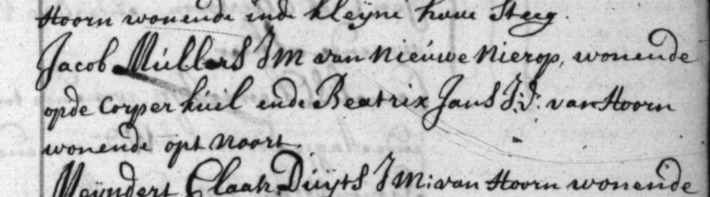 Hoorn wonende inde kleijne have Steeg.
Jacob Mullers J M van Nieuwe Nierop, wonende
opde Corper kuil ende Beatrix Jans J:d: van Hoorn
wonende opt Noort.
Meijndert Claasz Duijts J M: van Hoorn wonende